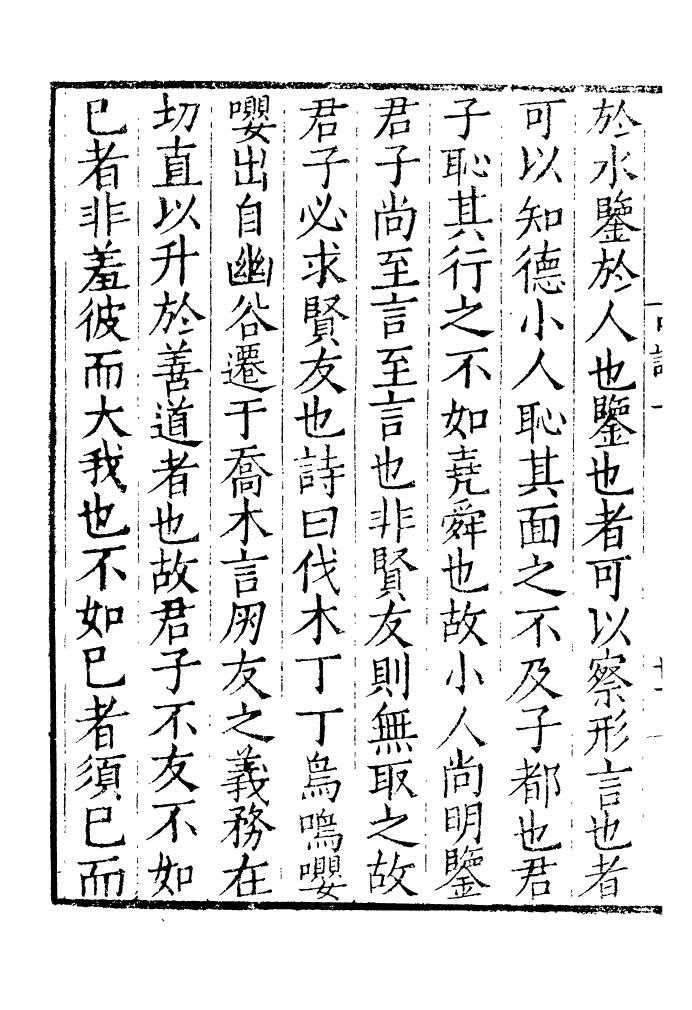 於水鑒於人也鑒也者可以察形言也者
可以知德小人恥其面之不及子都也君
子恥其行之不如堯舜也故小人尚明鑒
君子尚至言至言也非賢友則無取之故
君子必求賢友也詩曰伐木丁丁鳥鳴嚶
嚶出自幽谷遷于喬木言朋友之義務在
切直以升於善道者也故君子不友不如
己者非羞彼而大我也不如己者須己而